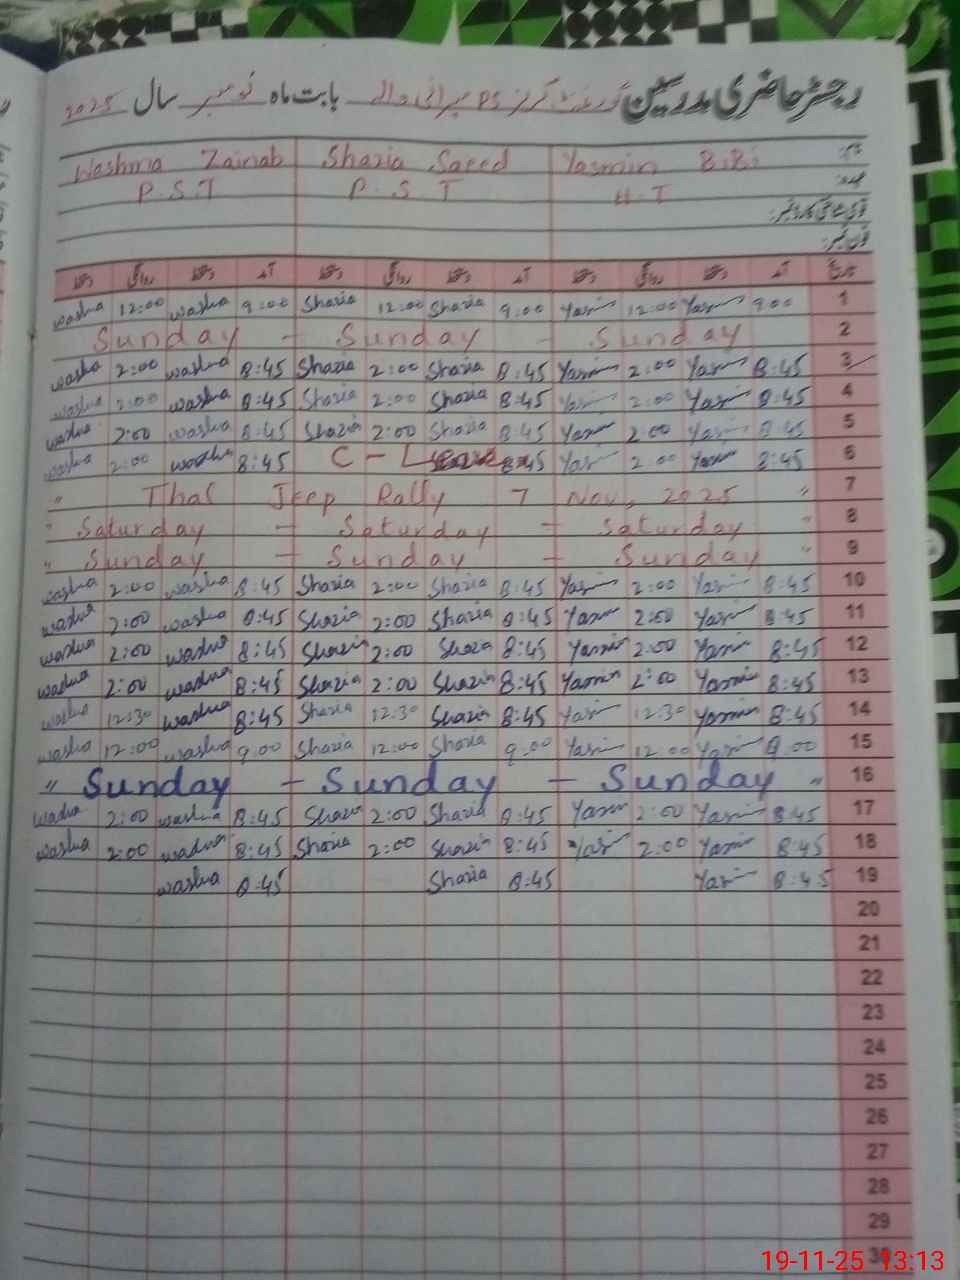 رجسٹر حاضری مدرسین گورنمنٹ گرلز PS میرانی والی بابت ماہ نومبر سال 2025
Washma Zainab Shazia Saeed Yasmin BiBi نام:
P.S.T P.S.T H.T عہدہ:
قومی شناختی کارڈ نمبر:
فون نمبر:
دستخط روانگی دستخط آمد دستخط روانگی دستخط آمد دستخط روانگی دستخط آمد تاریخ
washa 12:00 washa 9:00 Shazia 12:00 Shazia 9:00 Yasmin 12:00 Yasmin 9:00 1
Sunday - Sunday - Sunday 2
washa 2:00 washa 8:45 Shazia 2:00 Shazia 8:45 Yasmin 2:00 Yasmin 8:45 3
washa 2:00 washa 8:45 Shazia 2:00 Shazia 8:45 Yasmin 2:00 Yasmin 8:45 4
washa 2:00 washa 8:45 Shazia 2:00 Shazia 8:45 Yasmin 2:00 Yasmin 8:45 5
washa 2:00 washa 8:45 C - Leave 8:45 Yasmin 2:00 Yasmin 8:45 6
" Thal Jeep Rally 7 Nov, 2025 " 7
" Saturday - Saturday - Saturday " 8
" Sunday - Sunday - Sunday " 9
washa 2:00 washa 8:45 Shazia 2:00 Shazia 8:45 Yasmin 2:00 Yasmin 8:45 10
washa 2:00 washa 8:45 Shazia 2:00 Shazia 8:45 Yasmin 2:00 Yasmin 8:45 11
washa 2:00 washa 8:45 Shazia 2:00 Shazia 8:45 Yasmin 2:00 Yasmin 8:45 12
washa 2:00 washa 8:45 Shazia 2:00 Shazia 8:45 Yasmin 2:00 Yasmin 8:45 13
washa 12:30 washa 8:45 Shazia 12:30 Shazia 8:45 Yasmin 12:30 Yasmin 8:45 14
washa 12:00 washa 9:00 Shazia 12:00 Shazia 9:00 Yasmin 12:00 Yasmin 9:00 15
" Sunday - Sunday - Sunday " 16
washa 2:00 washa 8:45 Shazia 2:00 Shazia 8:45 Yasmin 2:00 Yasmin 8:45 17
washa 2:00 washa 8:45 Shazia 2:00 Shazia 8:45 Yasmin 2:00 Yasmin 8:45 18
washa 8:45 Shazia 8:45 Yasmin 8:45 19
20
21
22
23
24
25
26
27
28
29
30
19-11-25 13:13